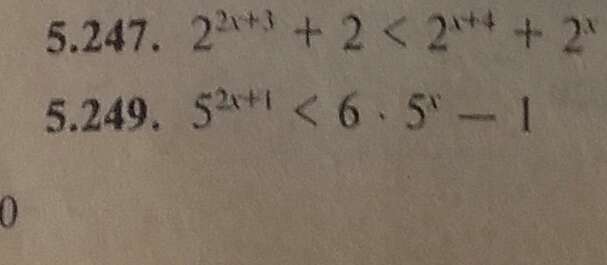 5.247. 2²ˣ⁺³ + 2 < 2ˣ⁺⁴ + 2ˣ
5.249. 5²ˣ⁺¹ < 6 · 5ˣ — 1
0